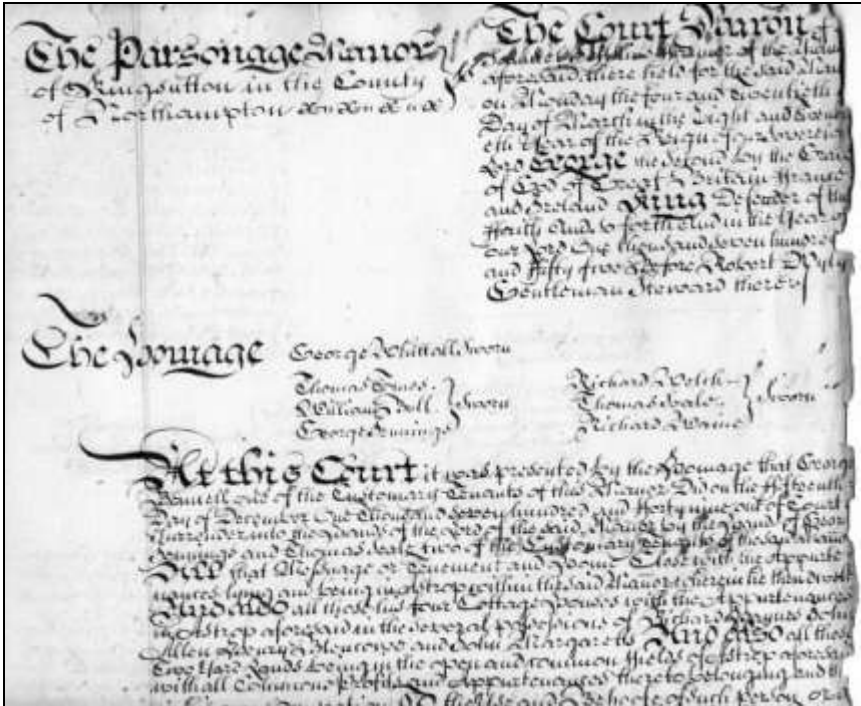 The Parsonage Manor
of Kingsutton in the County
of Northampton
The Court Baron of
of the Manor
aforesaid there held for the said Man
on Monday the four and twentieth
Day of March in the Eight and twenty
eth Year of the Reign of our Sovereign
Lord George the Second by the Grace
of God of Great Britain France
and Ireland King Defender of the
Faith And so forth And in the Year of
our Lord One thousand seven hundred
and fifty five Before Robert
Gentleman Steward thereof
The Homage
George Whittall Sworn
Thomas
William
George Jennings
Sworn
Richard Welch
Thomas Seale
Richard
Sworn
At this Court it was presented by the Homage that George
one of the Customary Tenants of this Manor Did on the fifteenth
Day of December One Thousand seven hundred and forty nine out of Court
Surrender into the Hands of the Lord of the said Manor by the Hands of Geor
Jennings and Thomas Seale two of the Customary Tenants of the said Manor
All that Messuage or Tenement and Home Close with the Appurte
nances lying and being in Astrop within the said Manor wherein he then dwelt
And also all those his four Cottage Houses with the Appurtenances
in Astrop aforesaid in the several possessions of Richard Haynes John
Allen and John Margaretts And also all those
Two Yard Lands being in the open and common fields of Astrop aforesaid
with all Commons Profits and Appurtenances thereto belonging and th
the Use and Behoofe of such Person or